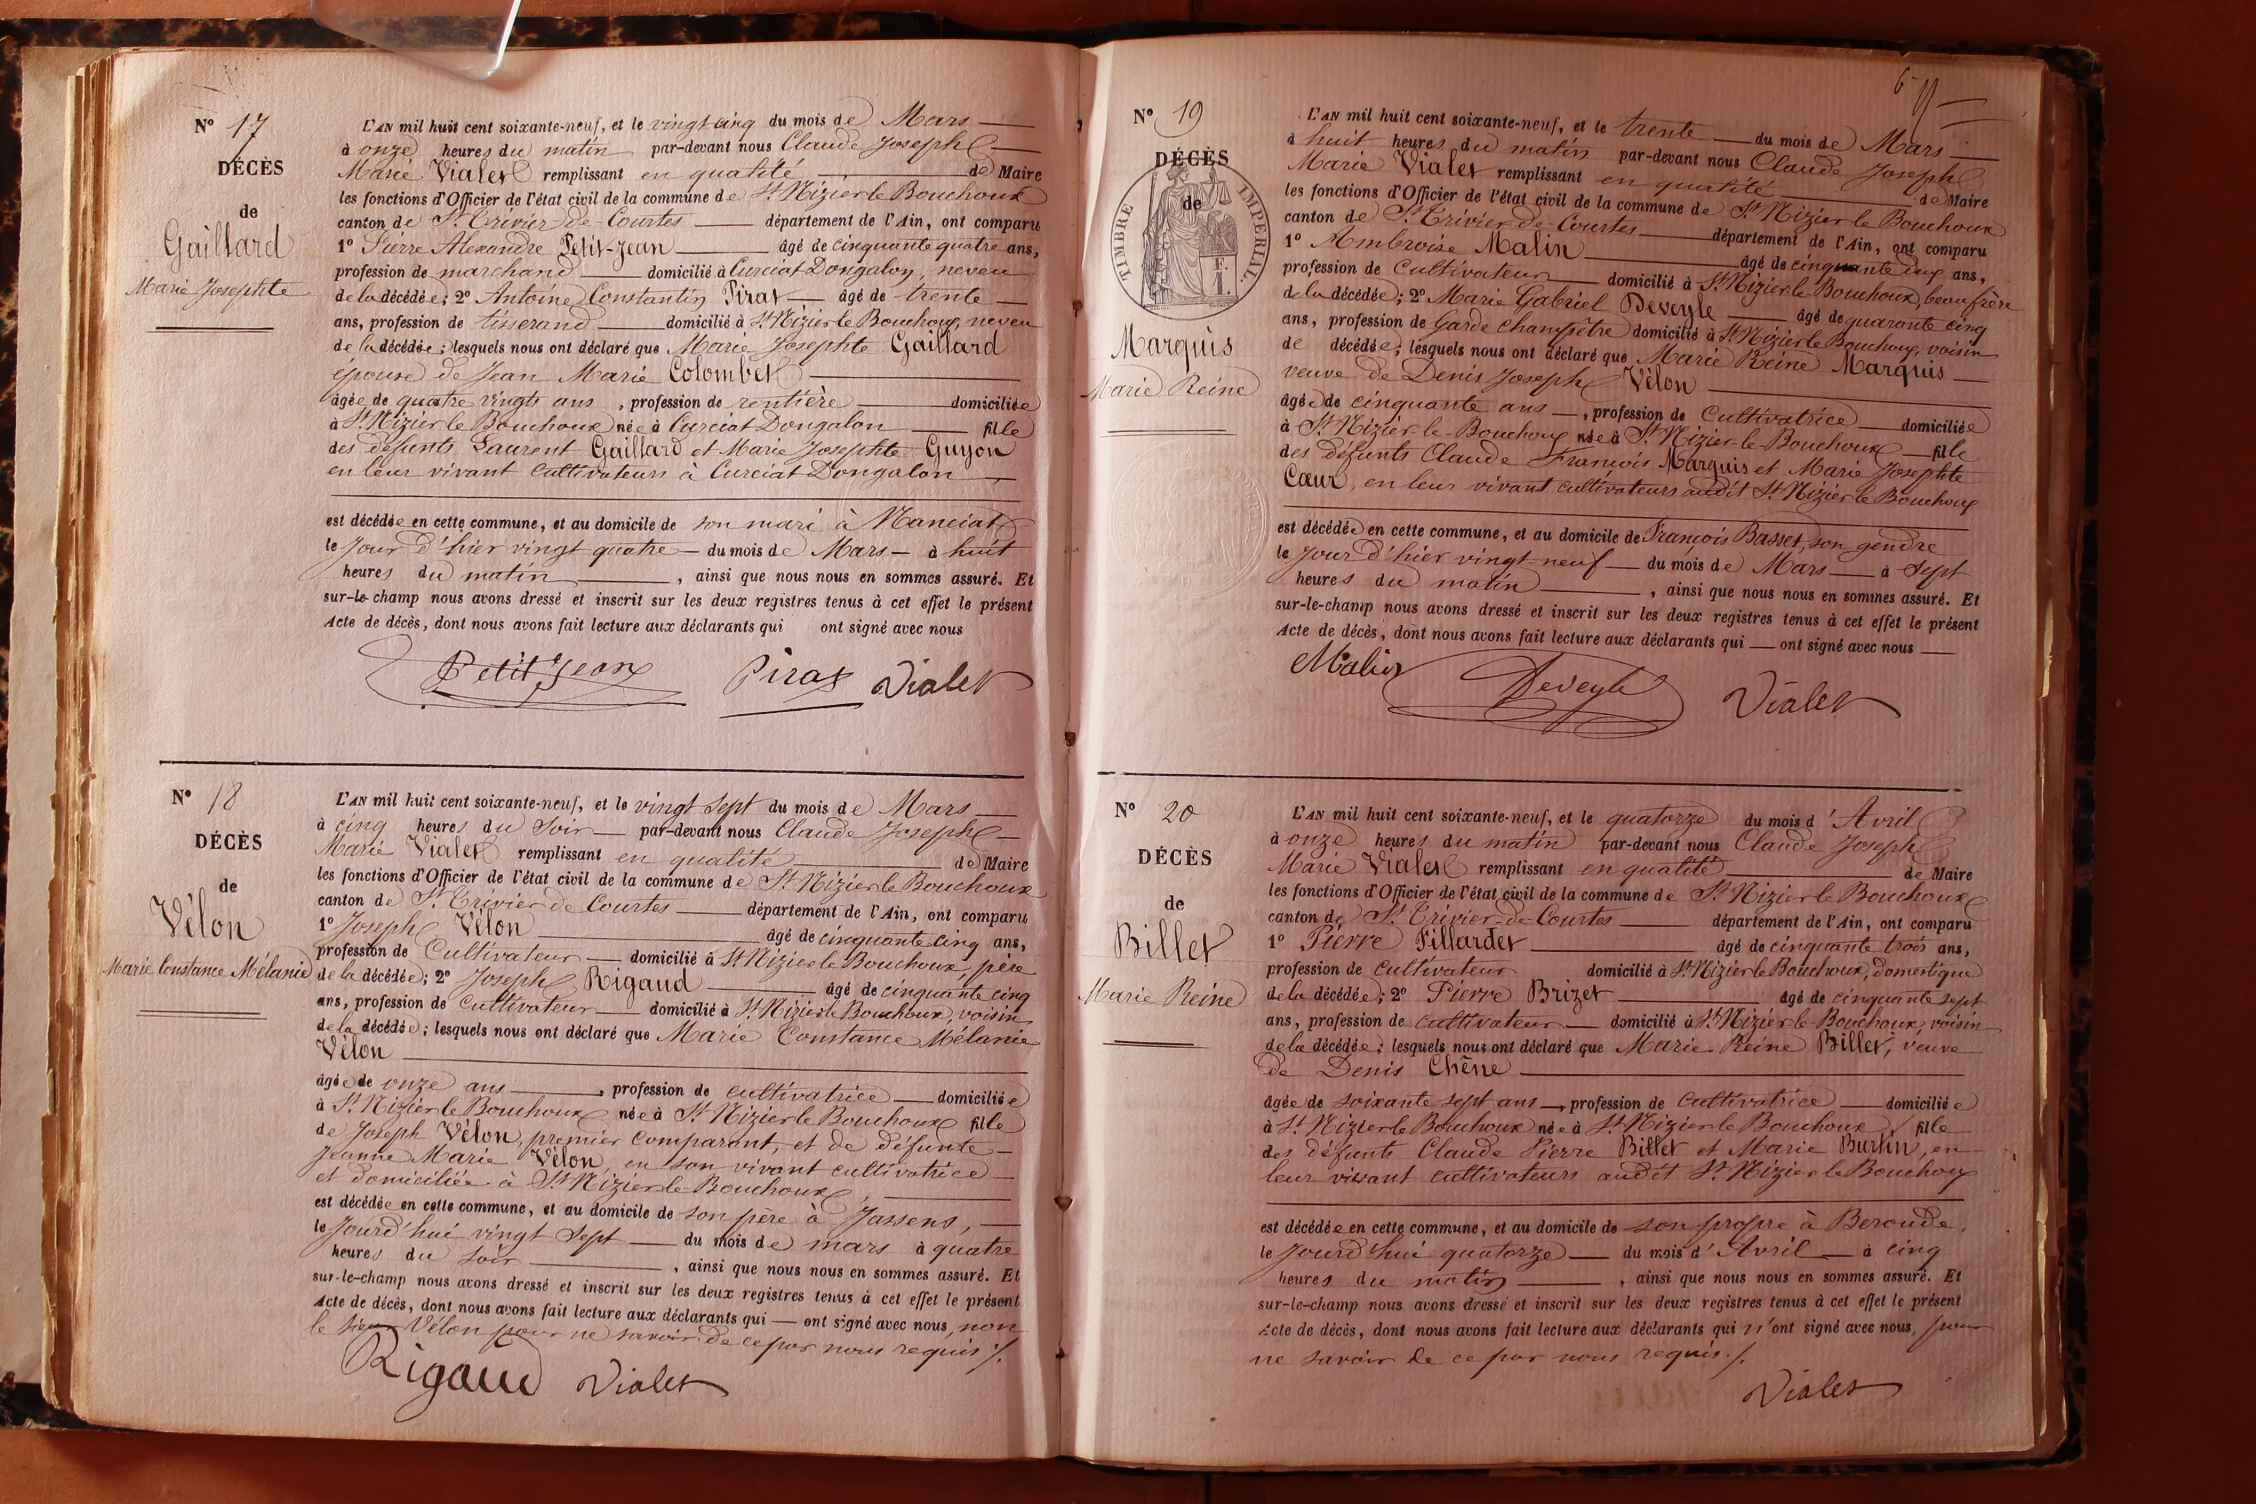 Nº 17
DÉCÈS
de
Gaillard
Marie Josephte
L'AN mil huit cent soixante-neuf, et le vingt cinq du mois de Mars
à onze heures du matin par-devant nous Claude Joseph
Marie Vialet remplissant en qualité de Maire
les fonctions d'Officier de l'état civil de la commune de St Nizier le Bouchoux
canton de St Trivier-de-Courtes département de l'Ain, ont comparu
1º Pierre Alexandre Petit-Jean âgé de cinquante quatre ans,
profession de marchand domicilié à Curciat Dongalon, neveu
de la décédée; 2º Antoine Constantin Pirat âgé de trente
ans, profession de tisserand domicilié à St Nizier le Bouchoux, neveu
de la décédée; lesquels nous ont déclaré que Marie Josephte Gaillard
épouse de Jean Marie Colombet
âgée de quatre vingts ans, profession de rentière domiciliée
à St Nizier le Bouchoux née à Curciat Dongalon fille
des défunts Laurent Gaillard et Marie Josephte Guyon
en leur vivant cultivateurs à Curciat Dongalon
est décédée en cette commune, et au domicile de son mari à Manciat
le jour d'hier vingt quatre du mois de Mars à huit
heures du matin, ainsi que nous nous en sommes assuré. Et
sur-le-champ nous avons dressé et inscrit sur les deux registres tenus à cet effet le présent
Acte de décès, dont nous avons fait lecture aux déclarants qui ont signé avec nous
Petit Jean Pirat Vialet
Nº 18
DÉCÈS
de
Vélon
Marie Constance Mélanie
L'AN mil huit cent soixante-neuf, et le vingt sept du mois de Mars
à cinq heures du soir par-devant nous Claude Joseph
Marie Vialet remplissant en qualité de Maire
les fonctions d'Officier de l'état civil de la commune de St Nizier le Bouchoux
canton de St Trivier de Courtes département de l'Ain, ont comparu
1º Joseph Vélon âgé de cinquante cinq ans,
profession de Cultivateur domicilié à St Nizier le Bouchoux, père
de la décédée; 2º Joseph Rigaud âgé de cinquante cinq
ans, profession de Cultivateur domicilié à St Nizier le Bouchoux, voisin
de la décédée; lesquels nous ont déclaré que Marie Constance Mélanie
Vélon
âgée de onze ans, profession de cultivatrice domiciliée
à St Nizier le Bouchoux née à St Nizier le Bouchoux fille
de Joseph Vélon, premier comparant, et de défunte
Jeanne Marie Vélon, en son vivant cultivatrice
et domiciliée à St Nizier-le-Bouchoux,
est décédée en cette commune, et au domicile de son père à Jassens,
le jourd'hui vingt sept du mois de mars à quatre
heures du soir, ainsi que nous nous en sommes assuré. Et
sur-le-champ nous avons dressé et inscrit sur les deux registres tenus à cet effet le présent
Acte de décès, dont nous avons fait lecture aux déclarants qui ont signé avec nous, non
le sieur Vélon pour ne savoir de ce par nous requis ./.
Rigaud Vialet
Nº 19
DÉCÈS
de
TIMBRE IMPÉRIAL.
F.
1.
Marquis
Marie Reine
L'AN mil huit cent soixante-neuf, et le trente du mois de Mars
à huit heures du matin par-devant nous Claude Joseph
Marie Vialet remplissant en qualité de Maire
les fonctions d'Officier de l'état civil de la commune de St Nizier le Bouchoux
canton de St Trivier de Courtes département de l'Ain, ont comparu
1º Ambroise Malin âgé de cinquante six ans,
profession de Cultivateur domicilié à St Nizier le Bouchoux, beau frère
de la décédée; 2º Marie Gabriel Deveyle âgé de quarante cinq
ans, profession de Garde champêtre domicilié à St Nizier le Bouchoux, voisin
de décédée; lesquels nous ont déclaré que Marie Reine Marquis
veuve de Denis Joseph Vélon
âgée de cinquante ans, profession de Cultivatrice domiciliée
à St Nizier-le-Bouchoux née à St Nizier-le-Bouchoux fille
des défunts Claude François Marquis et Marie Josephte
Cœur, en leur vivant cultivateurs audit St Nizier le Bouchoux
est décédée en cette commune, et au domicile de François Basset, son gendre
le jour d'hier vingt-neuf du mois de Mars à Sept
heures du matin, ainsi que nous nous en sommes assuré. Et
sur-le-champ nous avons dressé et inscrit sur les deux registres tenus à cet effet le présent
Acte de décès, dont nous avons fait lecture aux déclarants qui ont signé avec nous
Malin Deveyle Vialet
Nº 20
DÉCÈS
de
Billet
Marie Reine
L'AN mil huit cent soixante-neuf, et le quatorze du mois d'Avril
à onze heures du matin par-devant nous Claude Joseph
Marie Vialet remplissant en qualité de Maire
les fonctions d'Officier de l'état civil de la commune de St Nizier le Bouchoux
canton de St Trivier-de-Courtes département de l'Ain, ont comparu
1º Pierre Fillardet âgé de cinquante trois ans,
profession de cultivateur domicilié à St Nizier le Bouchoux, domestique
de la décédée; 2º Pierre Brizet âgé de cinquante sept
ans, profession de cultivateur domicilié à St Nizier-le-Bouchoux, voisin
de la décédée; lesquels nous ont déclaré que Marie-Reine Billet, veuve
de Denis Chêne
âgée de soixante sept ans, profession de Cultivatrice domiciliée
à St Nizier le Bouchoux née à St Nizier le Bouchoux fille
des défunts Claude Pierre Billet et Marie Burtin, en
leur vivant cultivateurs audit St Nizier le Bouchoux
est décédée en cette commune, et au domicile de son propre à Beroude,
le jourd'hui quatorze du mois d'Avril à cinq
heures du matin, ainsi que nous nous en sommes assuré. Et
sur-le-champ nous avons dressé et inscrit sur les deux registres tenus à cet effet le présent
Acte de décès, dont nous avons fait lecture aux déclarants qui n'ont signé avec nous, pour
ne savoir de ce par nous requis ./.
Vialet